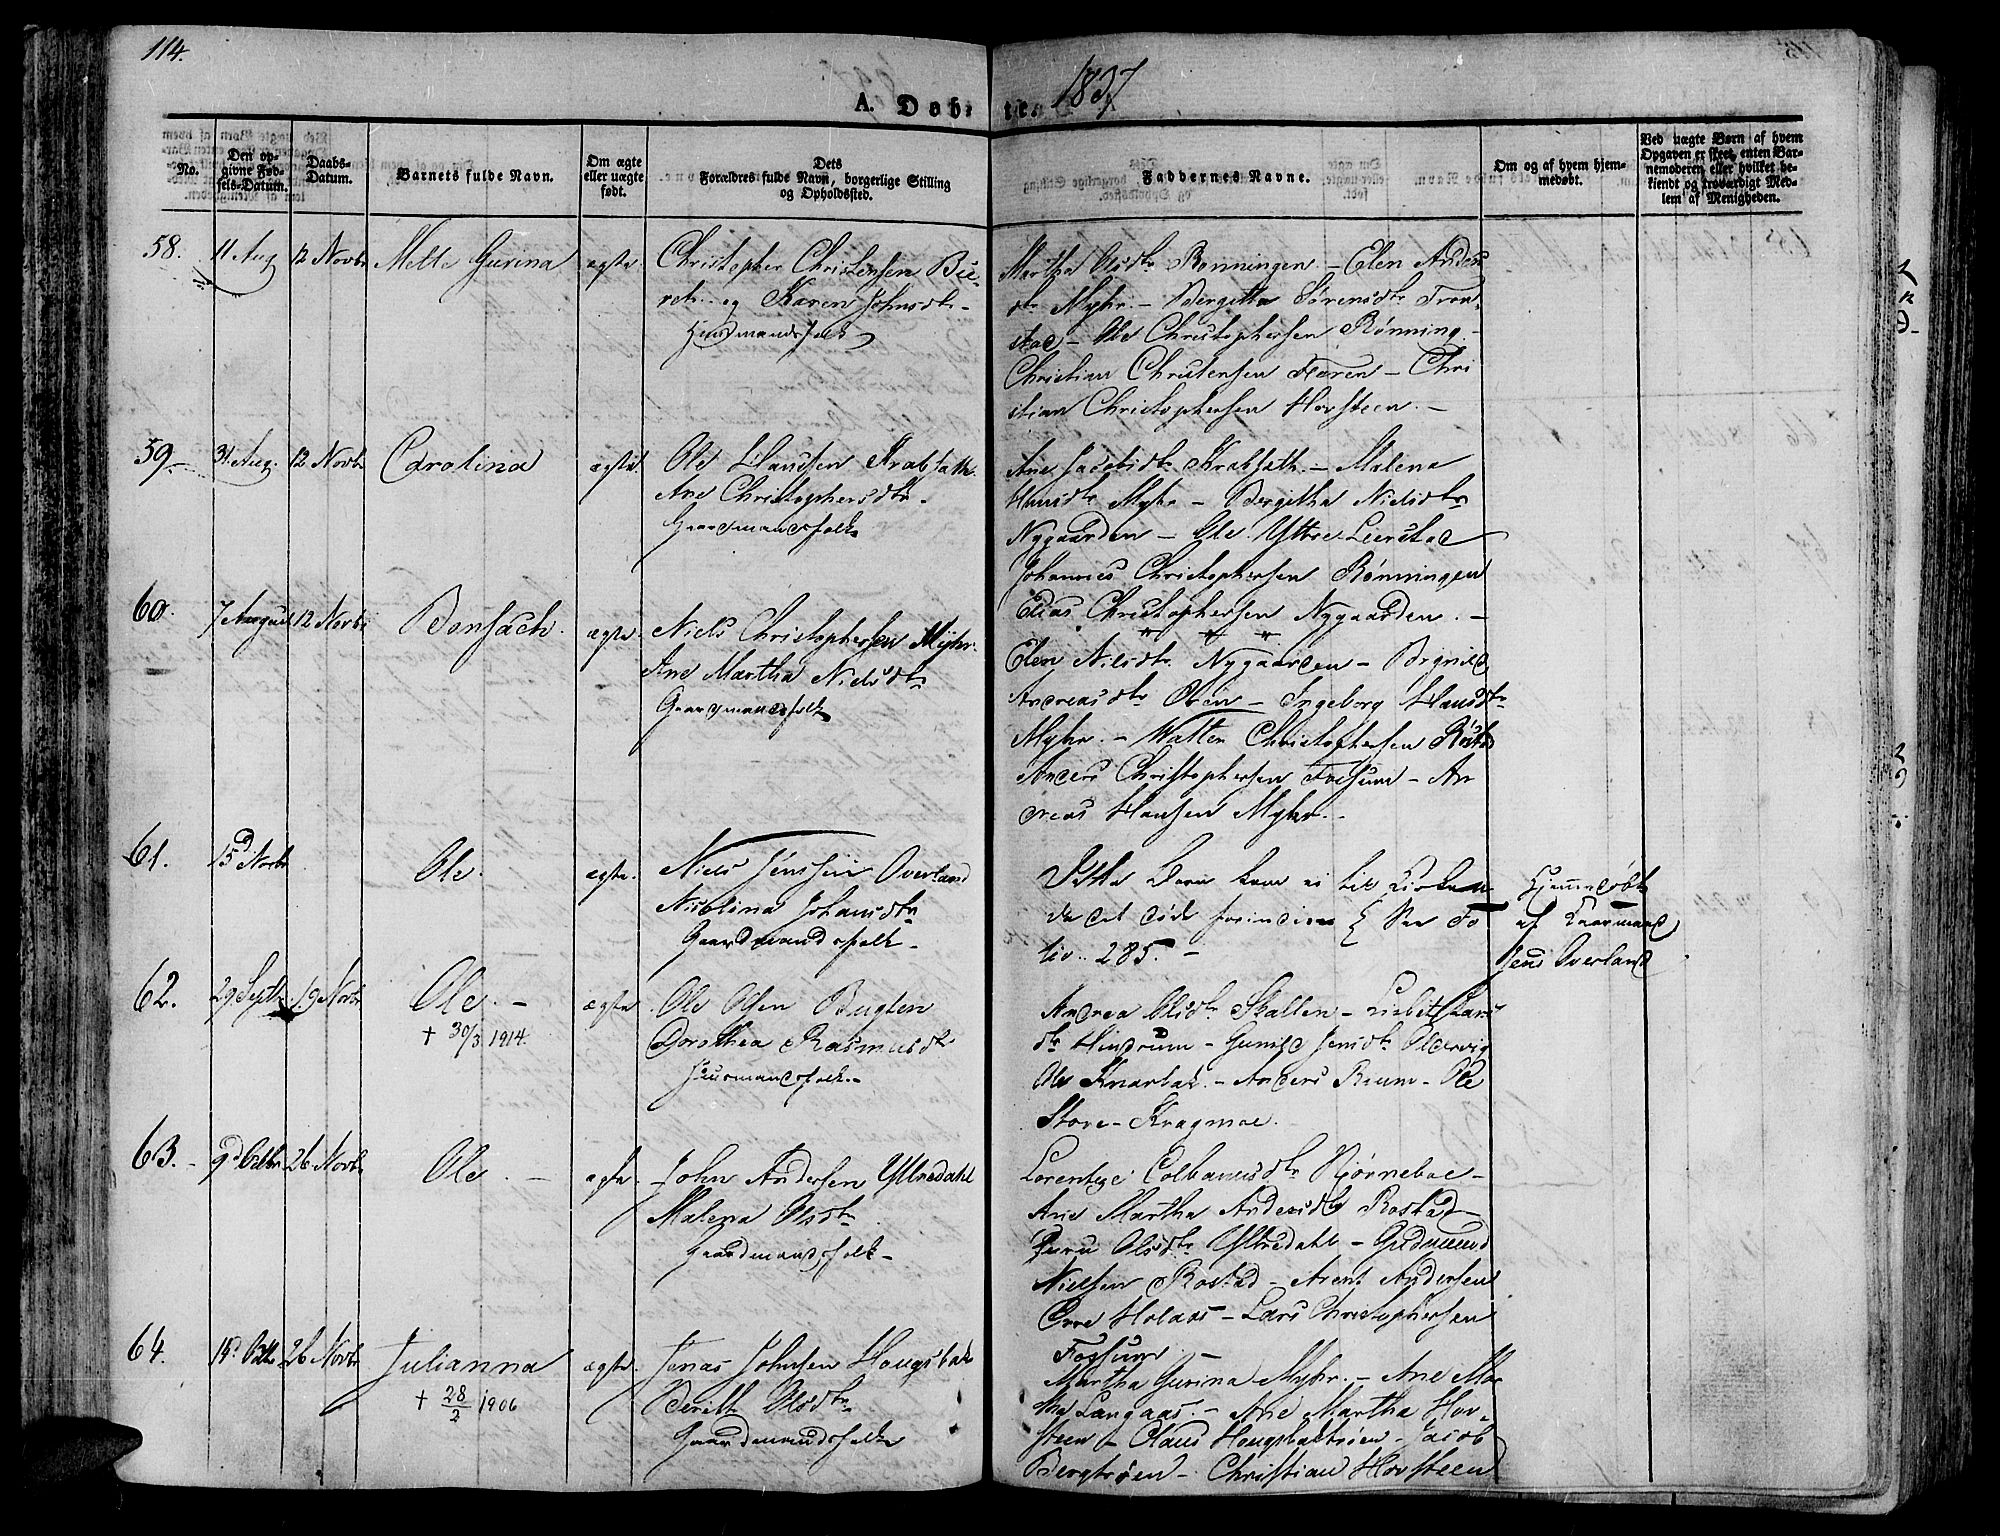 114.
1837
A. Døb- te.
No.
Den op-
givne Fød-
sels-Datum.
Daabs-
Datum.
Barnets fulde Navn.
Om ægte
eller uægte
født.
Dets
Forældres fulde Navn, borgerlige Stilling
og Opholdssted.
Faddernes Navne.
Om og af hvem hjem-
medøbt.
Ved uægte Børn af hvem
Opgaven er skeet, enten Bar-
nemoderen eller hvilket be-
kiendt og troværdigt Med-
lem af Menigheden.
58. 11 Aug 12 Novbr Mette Gurina ægte.
Christopher Christensen
og Karen Johnsdtr -
Huusmandsfolk
Martha Olsdtr Rønningen - Elen Anders
dtr Myhr. - Bergitta Sørensdtr Tron-
stad - Ole Christophersen Rønning -
Christian Christensen Foren - Chri
stian Christophersen Hovsteen. -
59. 31 Aug. 12 Novbr Carolina ægte.
Ole Clausen Krabsæth.
Ane Christophersdtr.
Gaardmandsfolk
Ane Jacobsdtr Krabsæth. - Malena
Hansdtr Myhr - Bergitha Nielsdtr
Nygaarden - Ole Yttre Leerstad
Johannes Christophersen Rønningen
Elias Christophersen Nygaarden. -
60. 7 August 12 Novbr Bensach. ægte.
Niels Christophersen Myhr.
Ane Martha Nielsdtr
Gaardmandsfolk
Elen Nilsdtr Nygaarden - Brynild
Andreasdtr Oren - Ingeborg Hansdtr
Myhr. - Christophersen Røstad
Anders Christophersen Fossum - An
dreas Hansen Myhr. -
61. 15d Novbr Ole. ægte.
Niels Jenssen Overland
Nicolina Johansdtr
Gaardmandsfolk -
Dette Barn kom ei til Kirken
da det døde forinden See Fo
liv. 285. -
Hjemmedøbt
af Kaarmand
Jens Overland
62. 29 Septbr 19 Novbr Ole. - ægte
† 30/3 1914.
Ole Olsen Bugten
Dorothea Rasmusdtr
Huusmandsfolk. -
Andrea Olsdtr Skallen - Lisbet Lars
dtr Hindrum - Gunild Jensdtr Oldervig
Ole - Anders Reum - Ole
Store - Kragmoe.
63. - 9d Octbr. 26 Novbr Ole. - ægte.
John Andersen Yttredahl
Malena Olsdtr
Gaardmandsfolk -
Lorentze Colbansdtr Hjørneboe -
Ane Martha Andersdtr Rostad -
Guru Olsdtr Yttredahl - Gudmund
Nielsen Rostad - Arent Andersen
Øvre Holaas - Lars Christophersen
Fossum -
64. 15d Octbr 26 Novbr Julianna ægte.
† 28/2 1906
Jonas Johnsen Hougsbak
Berith Olsdtr
Gaardmandsfolk
Martha Gurina Myhr. - Ane Mar
tha Langaas. - Ane Martha Hov-
steen - Claus Hougsbaktrøen - Jacob
Bergtrøen - Christian Hovsteen